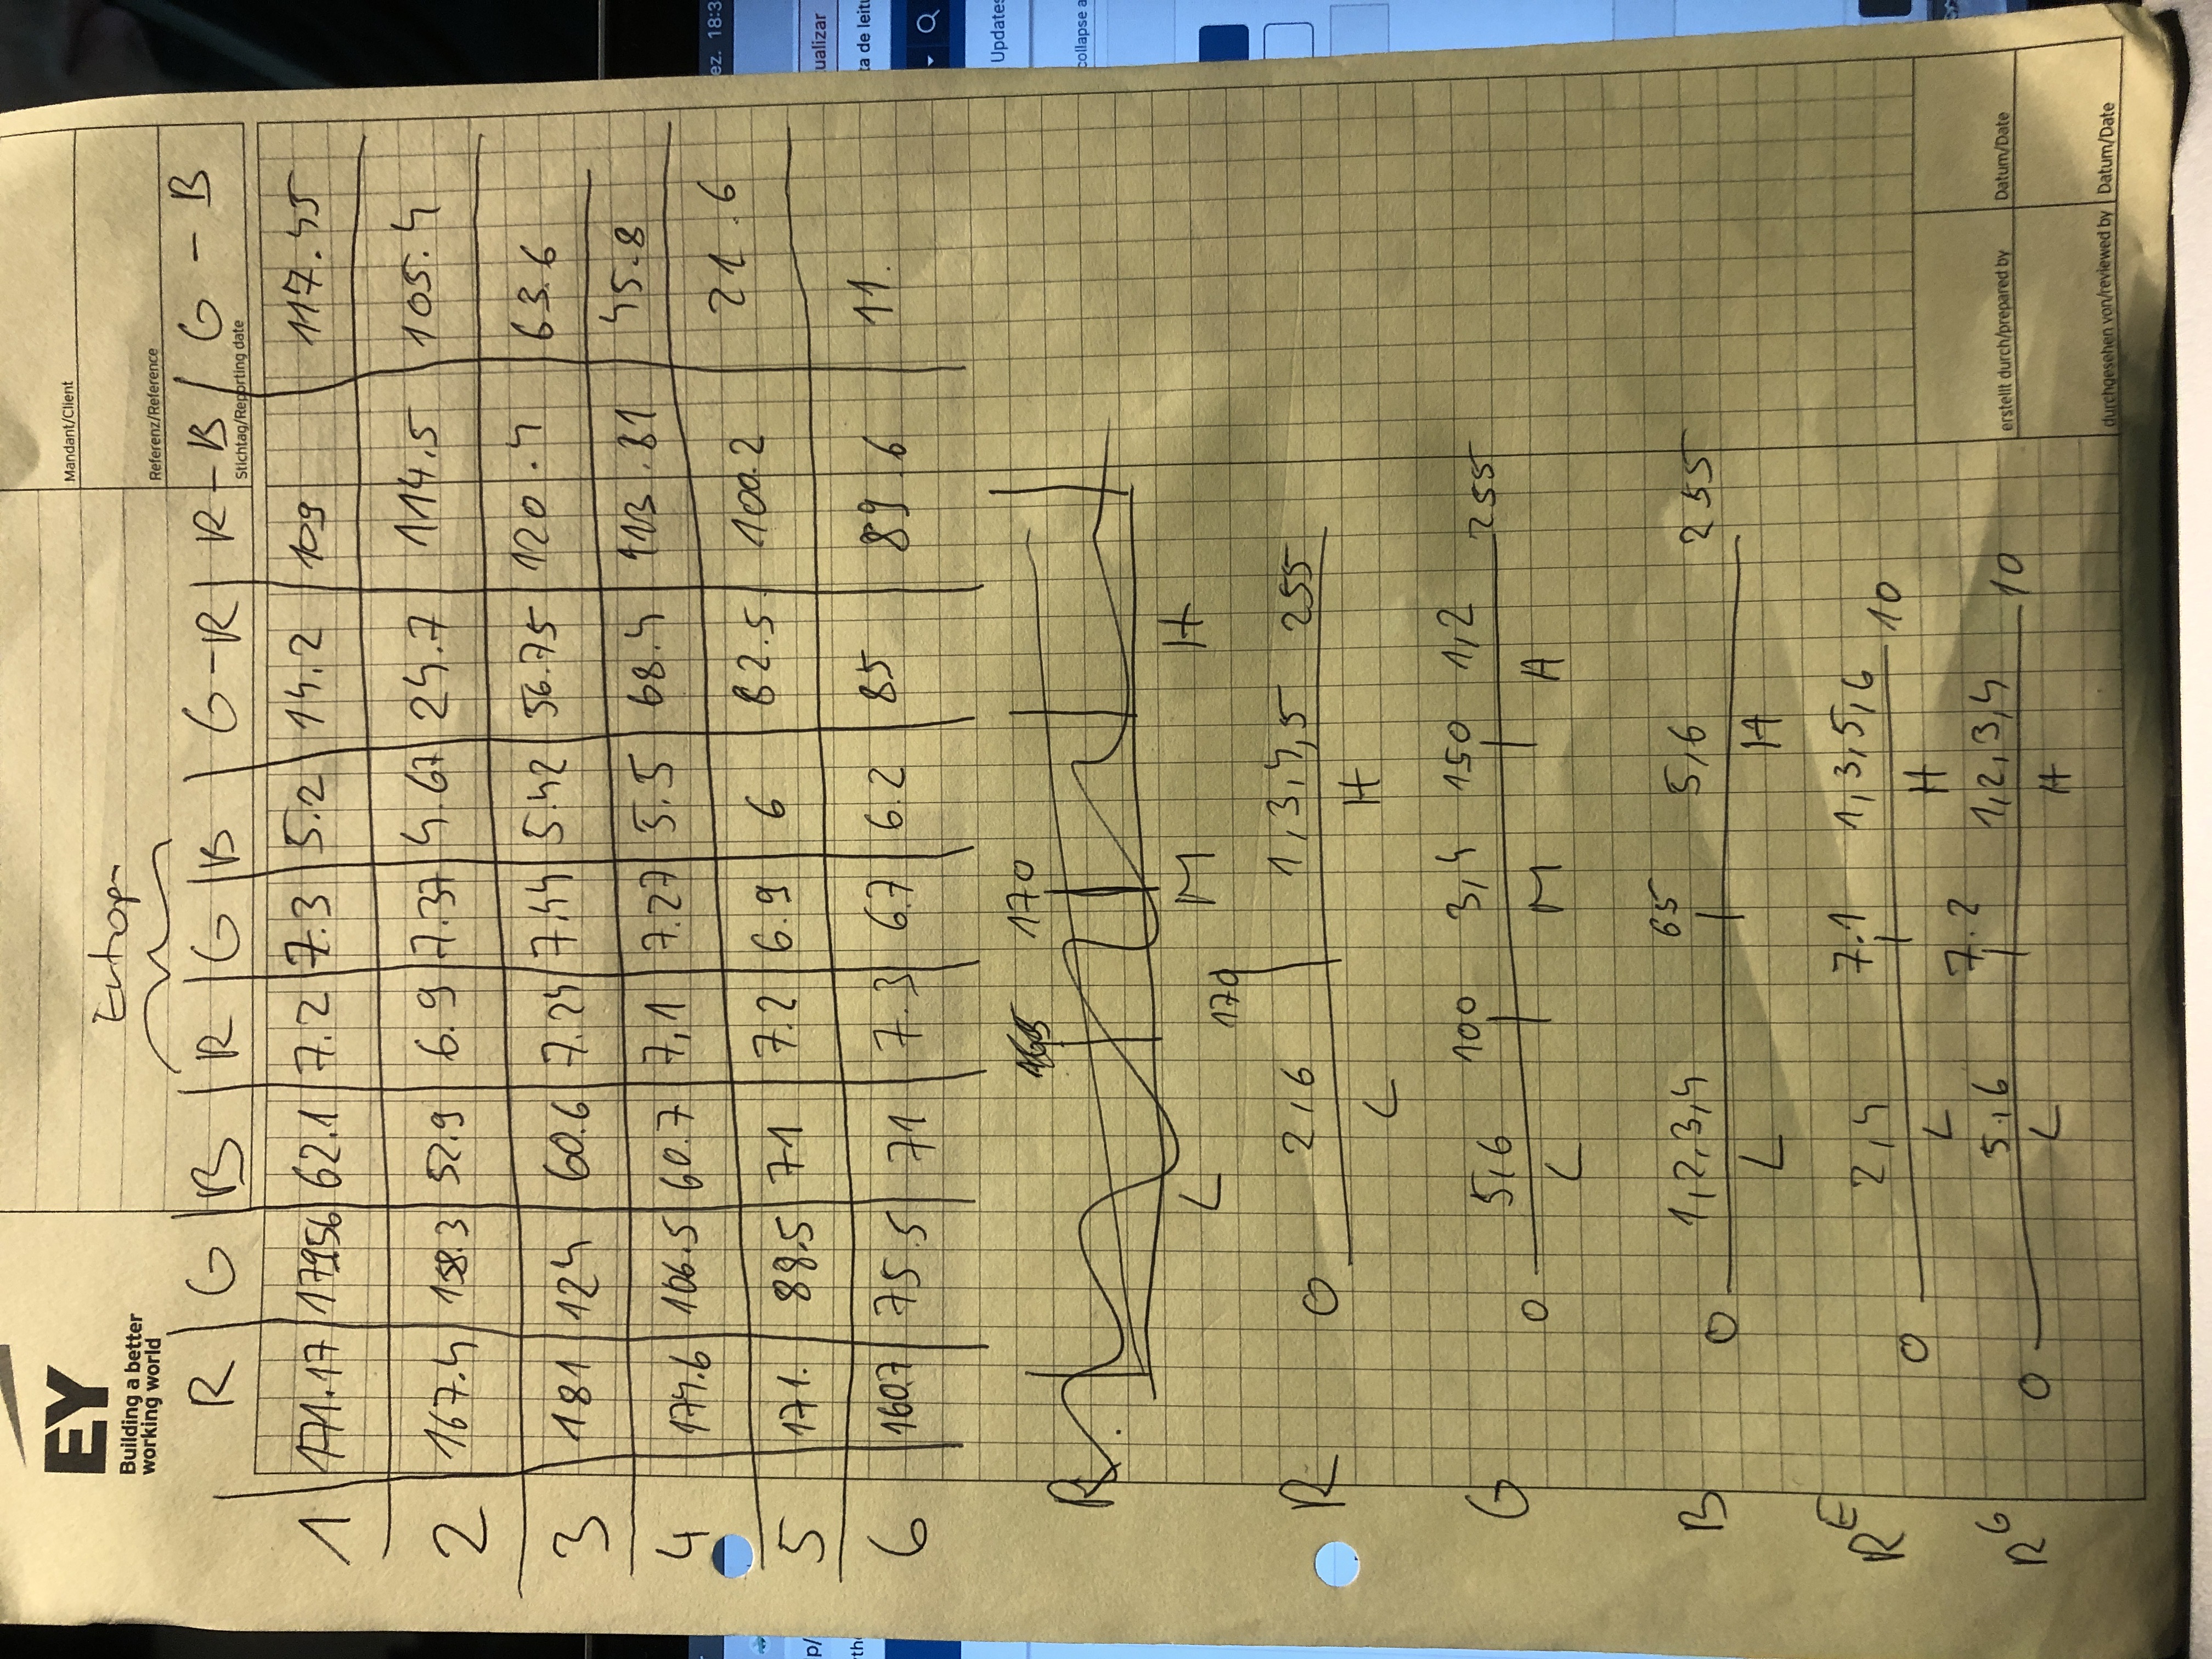 EY
Building a better
working world
Mandant/Client
Referenz/Reference
Stichtag/Reporting date
R G B R G B G-R R-B G-B
1 171.17 179.56 62.1 7.2 7.3 5.2 14.2 109 117.45
2 167.4 158.3 52.9 6.9 7.37 4.67 24.7 114.5 105.4
3 181 124 60.6 7.24 7.44 5.42 56.75 120.4 63.6
4 174.6 106.5 60.7 7,1 7.27 5.5 68.4 113.81 45.8
5 171. 88.5 71 7.2 6.9 6 82.5 100.2 21.6
6 160.7 75.5 71 7.3 6.7 6.2 85 89.6 11.
170
R.
L M H
170
R 0 2,6 1,3,4,5 255
L H
G 0 5,6 100 3,4 150 1,2 255
L M H
B 0 1,2,3,4 65 5,6 255
L H
R^E 0 2,4 7.1 1,3,5,6 10
L H
R^G 0 5,6 7.2 1,2,3,4 10
L H
erstellt durch/prepared by
Datum/Date
durchgesehen von/reviewed by
Datum/Date
ez. 18:3
lp/
ualizar
ythe
ta de leitu
Updates
collapse a